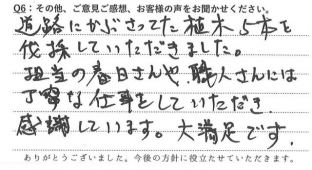 Q6：その他、ご意見ご感想、お客様の声をお聞かせください。
道路にかぶさってた植木5本を
伐採していただきました。
担当の春日さんや、職人さんには
丁寧な仕事をしていただき
感謝しています。大満足です。
ありがとうございました。今後の方針に役立たせていただきます。